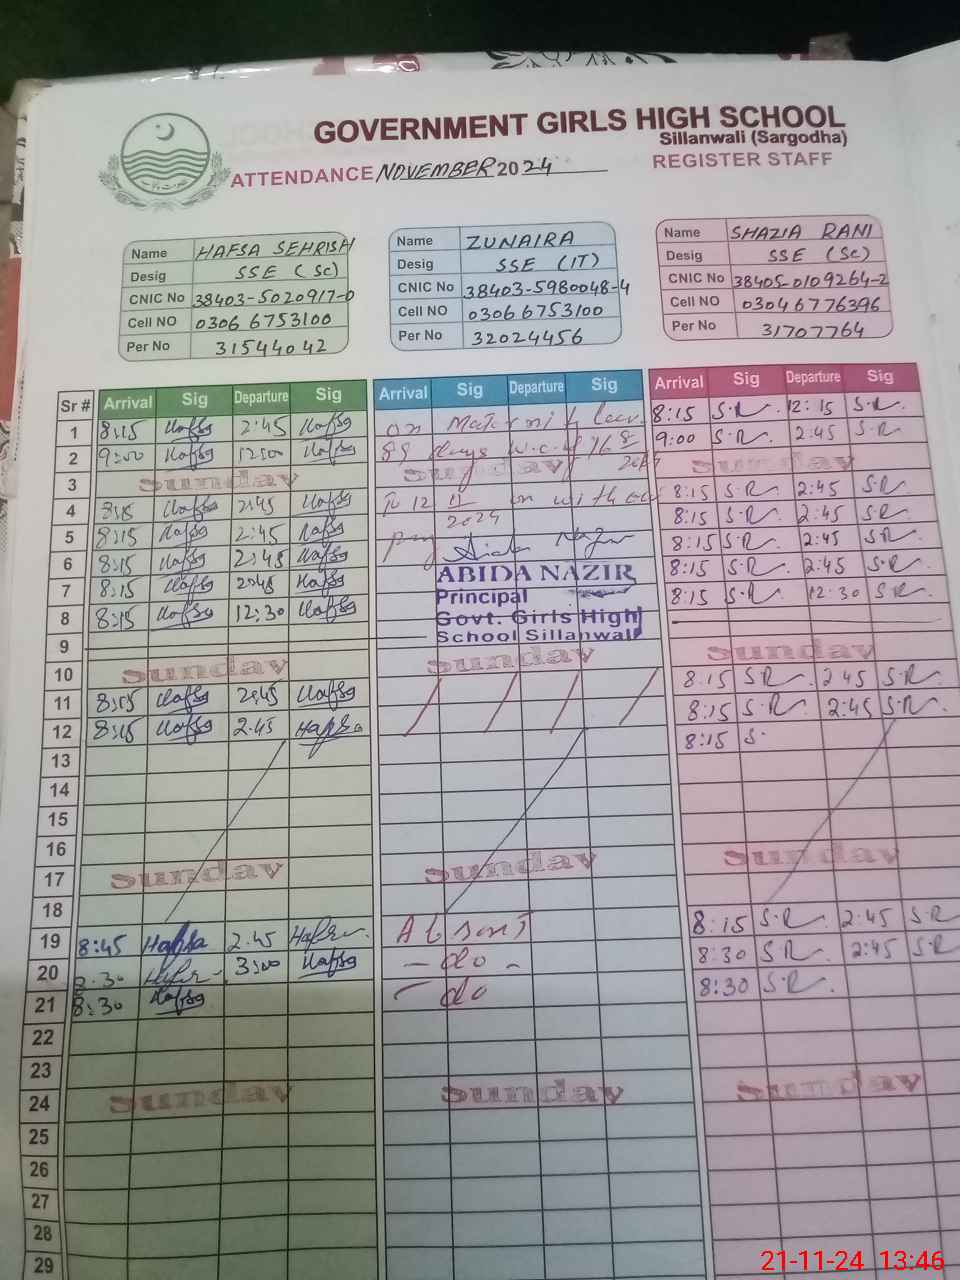 GOVERNMENT GIRLS HIGH SCHOOL
Sillanwali (Sargodha)
ATTENDANCE NOVEMBER 2024
REGISTER STAFF
Name HAFSA SEHRISH
Desig SSE (SC)
CNIC No 38403-5020917-0
Cell NO 0306 6753100
Per No 31544042
Name ZUNAIRA
Desig SSE (IT)
CNIC No 38403-5980048-4
Cell NO 0306 6753100
Per No 32024456
Name SHAZIA RANI
Desig SSE (SC)
CNIC No 38405-0109264-2
Cell NO 03046776396
Per No 31707764
Sr # Arrival Sig Departure Sig Arrival Sig Departure Sig Arrival Sig Departure Sig
1 8:15 Hafsa 2:45 Hafsa on 8:15 S.R. 12:15 S.R.
2 9:00 Hafsa 12:00 Hafsa 89 days w.e.f 9:00 S.R. 2:45 S.R
3 Sunday Sunday Sunday
4 8:15 Hafsa 2:45 Hafsa To 12 11 2024 8:15 S.R 2:45 S.R
5 8:15 Hafsa 2:45 Hafsa 8:15 S.R 2:45 S.R
6 8:15 Hafsa 2:45 Hafsa pay 8:15 S.R 2:45 S.R
7 8:15 Hafsa 2:45 Hafsa 8:15 S.R 2:45 S.R
8 8:15 Hafsa 12:30 Hafsa 8:15 S.R 12:30 S.R
ABIDA NAZIR
Principal
Govt. Girls High
School Sillanwali
9
10 Sunday Sunday Sunday
11 8:15 Hafsa 2:45 Hafsa 8:15 S.R 2 45 S.R
12 8:15 Hafsa 2:45 Hafsa 8:15 S.R 2:45 S.R.
13 8:15 S.
14
15
16
17 Sunday Sunday Sunday
18
19 8:45 Hafsa 2.45 Hafsa Absent 8:15 S.R 2:45 S.R
20 Hafsa 3:00 Hafsa - do - 8:30 S.R. 2:45 S.R
21 8:30 Hafsa - do 8:30 S.R.
22
23
24 Sunday Sunday Sunday
25
26
27
28
29
21-11-24 13:46